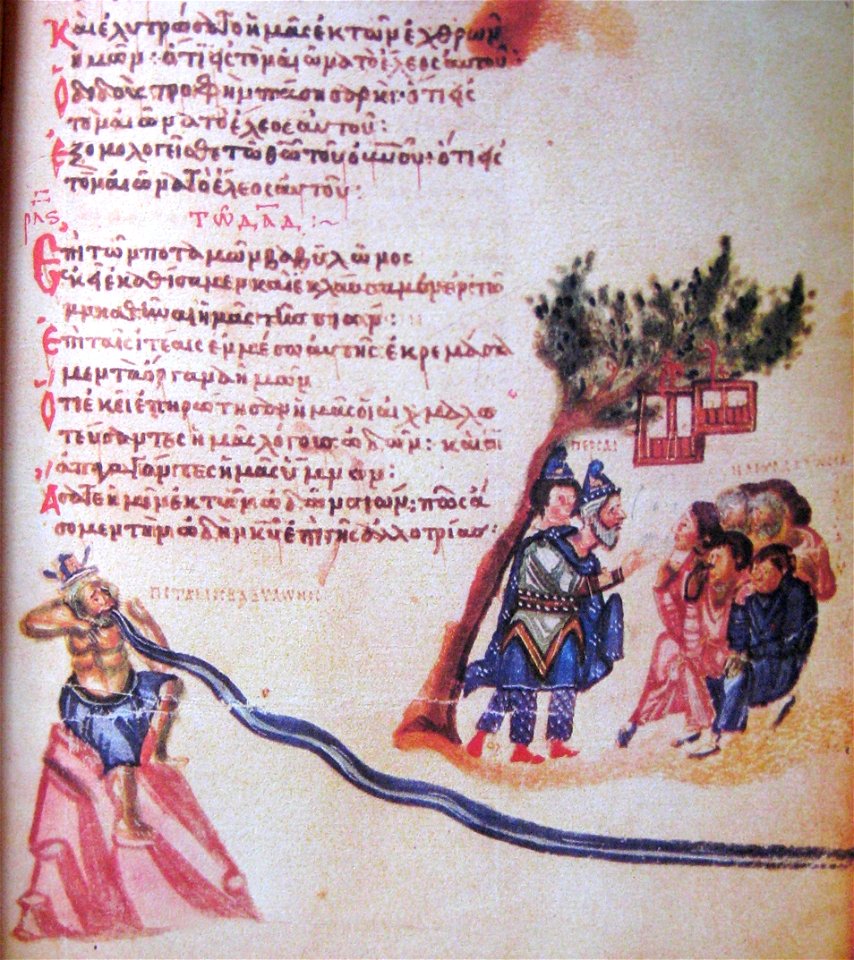 Καὶ ἐλυτρώσατο ἡμᾶς ἐκ τῶν ἐχθρῶν
ἡμῶν· ὅτι εἰς τὸν αἰῶνα τὸ ἔλεος αὐτοῦ·
Ὁ διδοὺς τροφὴν πάση σαρκί· ὅτι εἰς
τὸν αἰῶνα τὸ ἔλεος αὐτοῦ:
Ἐξομολογεῖσθε τῶ θῶ τοῦ οὐνοῦ· ὅτι εἰς
τὸν αἰῶνα τὸ ἔλεος αὐτοῦ:
ρλς τῶ δαδ :~
Ἐπὶ τῶν ποταμῶν βαβυλῶνος
ἐκεῖ ἐκαθίσαμεν καὶ ἐκλαύσαμεν ἐν τῶ
μνησθῆναι ἡμᾶς τῆς σιών:
Ἐπὶ ταῖς ἰτέαις ἐμμέσω αὐτῆς ἐκρεμάσα
μεν τὰ ὄργανα ἡμῶν
Ὅτι ἐκεῖ ἐπηρώτησαν ἡμᾶς οἱ αἰχμαλω
τεύσαντες ἡμᾶς λόγους ὠδῶν: καὶ οἱ
ἀπαγαγόντες ἡμᾶς ὕμνον:
Ἄσατε ἡμῖν ἐκ τῶν ὠδῶν σιών: πῶς ἄ
σομεν τὴν ὠδὴν κυ ἐπὶ γῆς ἀλλοτρίας:
ΠΕΡΣΑΙ
ΒΑΒΥΛΩΝΟΣ